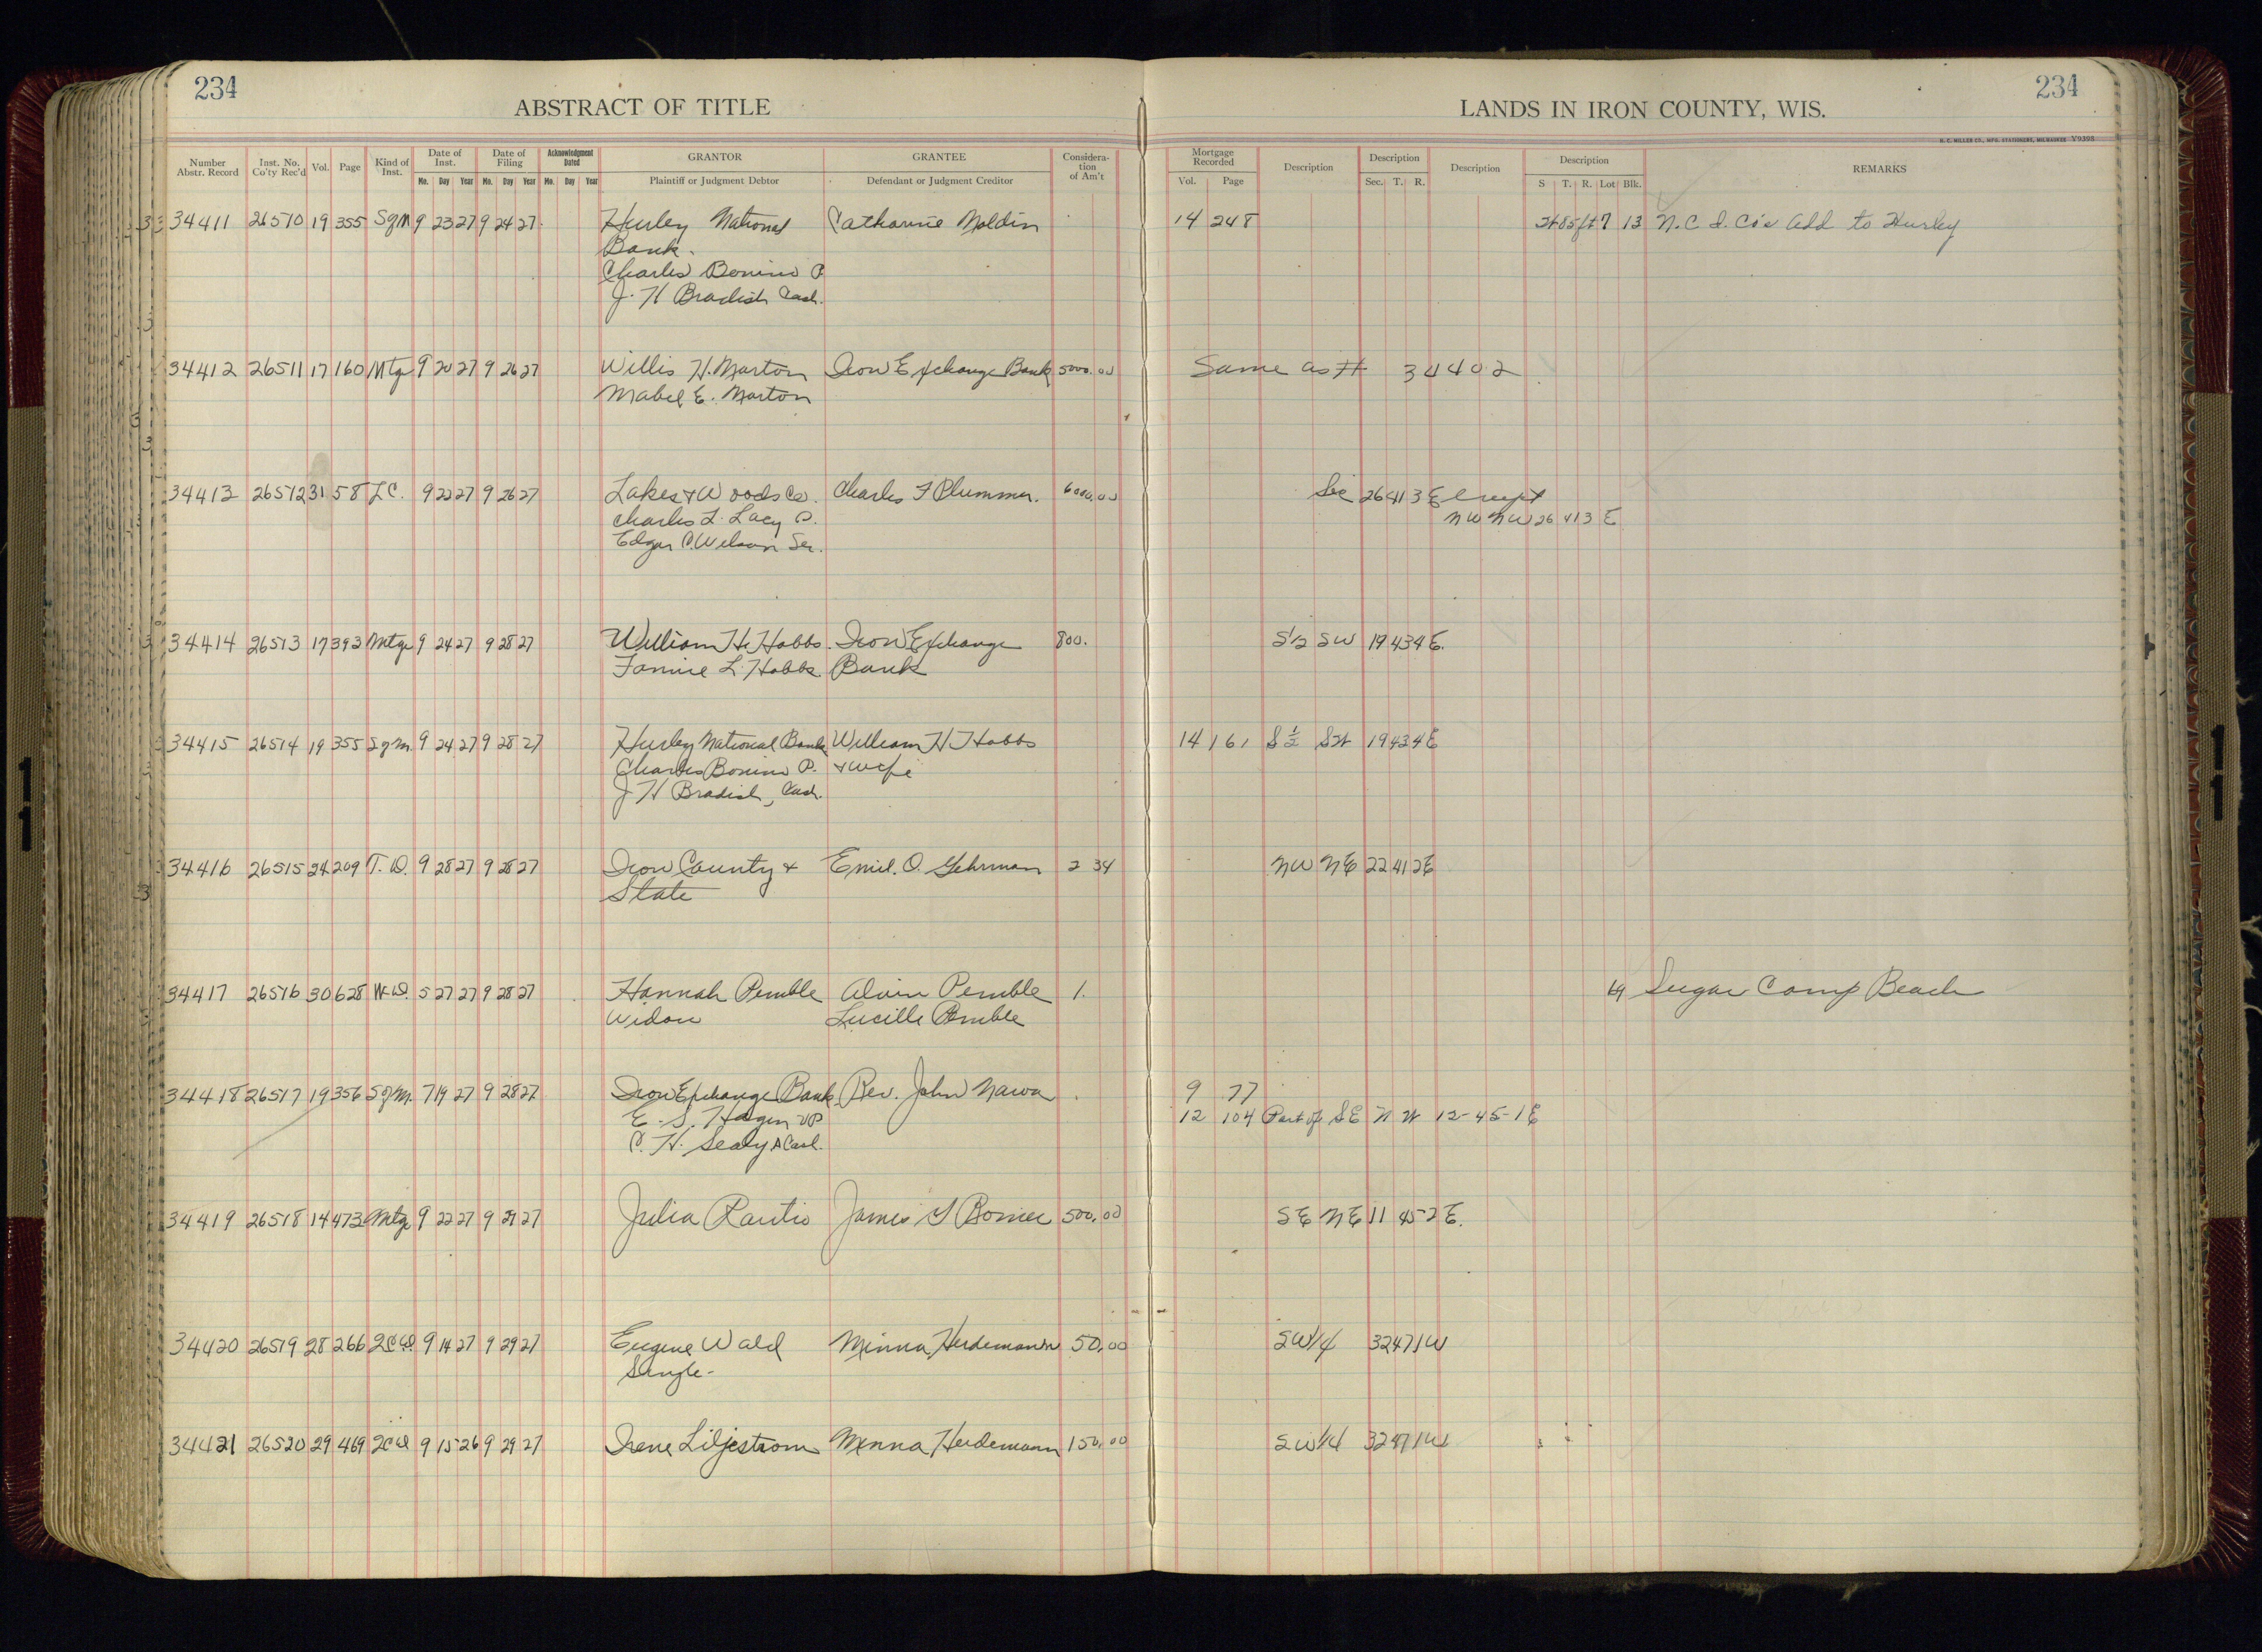 234
ABSTRACT OF TITLE
LANDS IN IRON COUNTY, WIS.
234
H. C. MILLER CO., MFG. STATIONERS, MILWAUKEE V9398
Number Abstr. Record | Inst. No. Co'ty Rec'd | Vol. | Page | Kind of Inst. | Date of Inst. Mo. Day Year | Date of Filing Mo. Day Year | Acknowledgment Dated Mo. Day Year | GRANTOR Plaintiff or Judgment Debtor | GRANTEE Defendant or Judgment Creditor | Consideration of Am't | Mortgage Recorded Vol. Page | Description | Description Sec. T. R. | Description | Description S T. R. Lot Blk. | REMARKS
34411 26510 19 355 Sgm 9 23 27 9 24 27 Hurley National Catharine Moldin 14 248 85ft 7 13 N.C I. Co's Add to Hurley
Bank.
Charles Bonino P.
J. H Bradish Cash.
34412 26511 17 160 Mtg 9 20 27 9 26 27 Willis H. Marton Iron Exchange Bank 5000.00 Same as # 34402
Mabel E. Marton
34413 26512 31 58 LC. 9 22 27 9 26 27 Lakes & Woods Co. Charles F Plummer. 6000.00 Sec 26 41 3 E Except
Charles L. Lacy P. NW NW 26 41 3 E
Edgar C. Wilson Sec.
34414 26513 17 393 Mtge 9 24 27 9 28 27 William H. Hobbs. Iron Exchange 800. S½ SW 19 43 4 E.
Fannie L. Hobbs. Bank
34415 26514 19 355 Sgm. 9 24 27 9 28 27 Hurley National Bank William H Hobbs 14 161 S ½ SW 19 43 4 E
Charles Bonino P. & wife
J H Bradish, Cash.
34416 26515 24 209 T. D. 9 28 27 9 28 27 Iron County & Emil. O. Gehrman 2 34 NW NE 22 41 2 E
State
34417 26516 30 628 W.D. 5 27 27 9 28 27 Hannah Pemble Alvin Pemble 1. Sugar Camp Beach
Widow Lucille Pemble
34418 26517 19 356 Sgm. 7 19 27 9 28 27 Iron Exchange Bank Rev. John Nawa 9 77
E. S. Hagen VP 12 104 Part of SE N W 12-45-1E
C. H. Sealy A Cash.
34419 26518 14 473 Mtge 9 22 27 9 29 27 Julia Rautio James G Bonner 500.00 SE NE 11 45 2 E.
34420 26519 28 266 QCD. 9 14 27 9 29 27 Eugene Wald Minna Herdemann 50.00 SW¼ 32 47 1 W
Single-
34421 26520 29 469 QCD 9 15 26 9 29 27 Irene Liljestrom Menna Herdemann 150.00 SW¼ 32 47 1 W